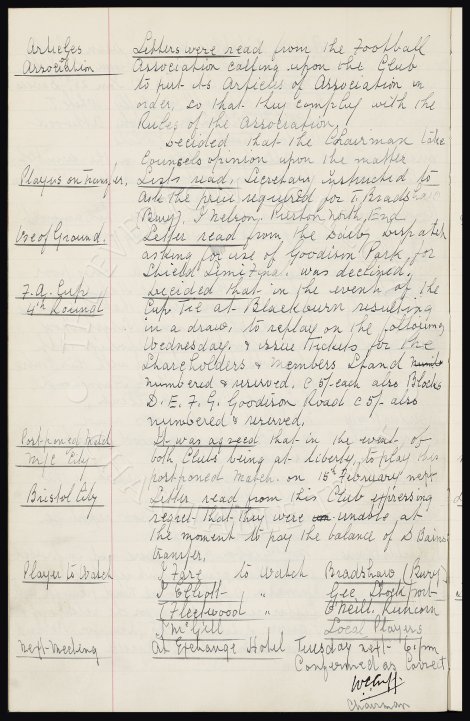 Articles Letters were read from the Football
of Association calling upon the Club
Association to put its Articles of Association in
order, so that they comply with the
Rules of the Association,
Decided that the Chairman take
Counsels opinion upon the matter
Players on transfer, Lists read. Secretary instructed to
ask the price required for T. Bradshaw
(Bury), J Nelson, Preston North End
Use of Ground. Letter read from the Daily Dispatch
asking for use of Goodison Park, for
Shield Semi Final. was declined.
F.A. Cup Decided that in the event of the
4th Round Cup Tie at Blackburn resulting
in a draw, to replay on the following
Wednesday. & issue tickets for the
Shareholders & Members Stand
numbered & reserved. @ 5/- each also Blocks
D. E. F. G. Goodison Road @ 5/- also
numbered & reserved.
Postponed Match It was agreed that in the event, of
M/c City both Clubs being at liberty, to play this
postponed match. on 15th February next
Bristol City Letter read from this Club expressing
regret that they were unable at
the moment to pay the balance of D Bains
transfer.
Player to Watch to Watch Bradshaw (Bury)
J Elliott " Gee Stockport
Fleetwood " O'Neill. Runcorn
McGill Local Players
Next Meeting At Exchange Hotel Tuesday next 6. pm
Confirmed as Correct
WCCuff.
Chairman